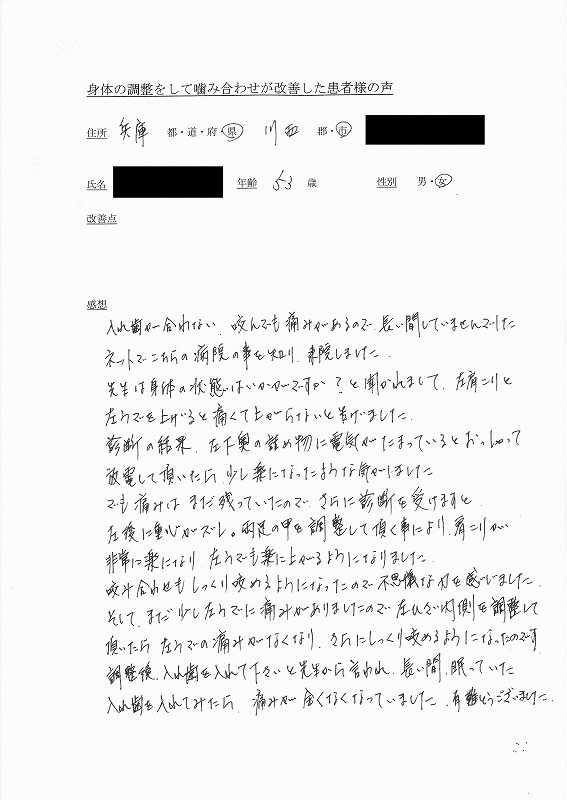 身体の調整をして噛み合わせが改善した患者様の声
住所 兵庫 都・道・府・県 川西 郡・市
氏名 年齢 53 歳 性別 男・女
改善点
感想
入れ歯が合わない、咬んでも痛みがあるので、長い間していませんでした
ネットでこちらの病院の事を知り、来院しました。
先生は身体の状態はいかがですか?と聞かれまして、左肩こりと
左うでを上げると痛くて上がらないと告げました。
診断の結果、左下奥の詰め物に電気がたまっているとおっしゃって
放電して頂いたら、少し楽になったような気がしました
でも痛みはまだ残っていたので、さらに診断を受けますと
左後に重心がズレ。両足の甲を調整して頂く事により、肩こりが
非常に楽になり、左うでも楽に上がるようになりました。
咬み合わせもしっくり咬めるようになったので不思議な力を感じました。
そして、まだ少し左うでに痛みがありましたので左ひざ内側を調整して
頂いたら左うでの痛みがなくなり、さらにしっくり咬めるようになったのです
調整後、入れ歯を入れて下さいと先生から言われ、長い間、眠っていた
入れ歯を入れてみたら、痛みが全くなくなっていました。有難とうございました。